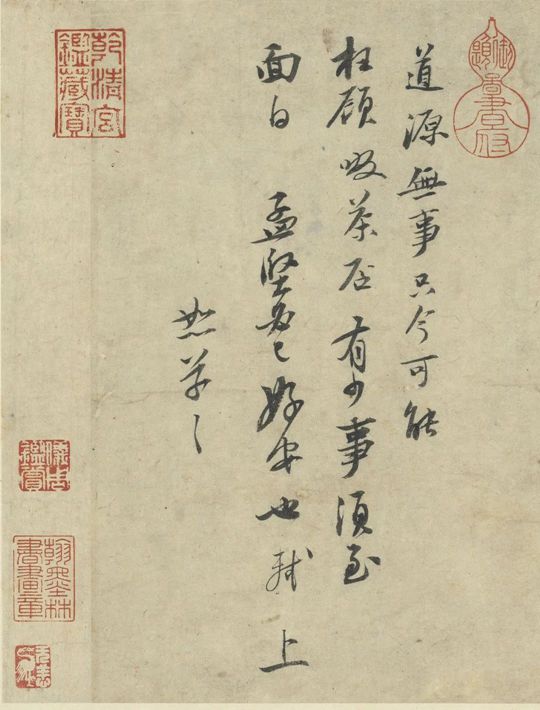 道源無事只今可能
枉顧啜茶否有少事須至
面白孟堅必已好安也軾上
恕草草
乾清宮
鑑藏寶
儀周
鑑賞
翰墨林
書畫章